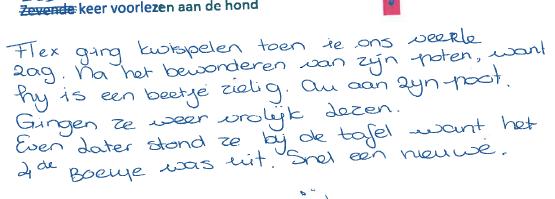 Zevende keer voorlezen aan de hond
Flex ging kwispelen toen ie ons weer
zag. Na het bewonderen van zijn poten, want
hy is een beetje zielig. Au aan zyn poot.
Gingen ze weer vrolijk lezen.
Even later stond ze bij de tafel want het
4de Boekje was uit. Snel een nieuwe.